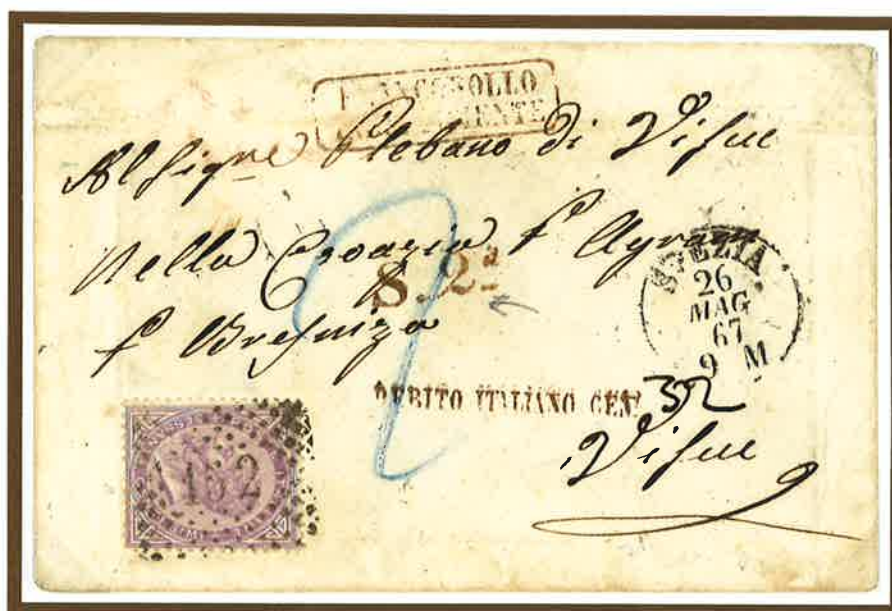 FRANCOBOLLO
INSUFFICIENTE
Al Sigre Plebano di Visue
Nella Croazia pr Agram
S. 2a
pr Bresniza
SPEZIA
26
MAG
67
9 M
DEBITO ITALIANO CENT 32
Visue
2
152